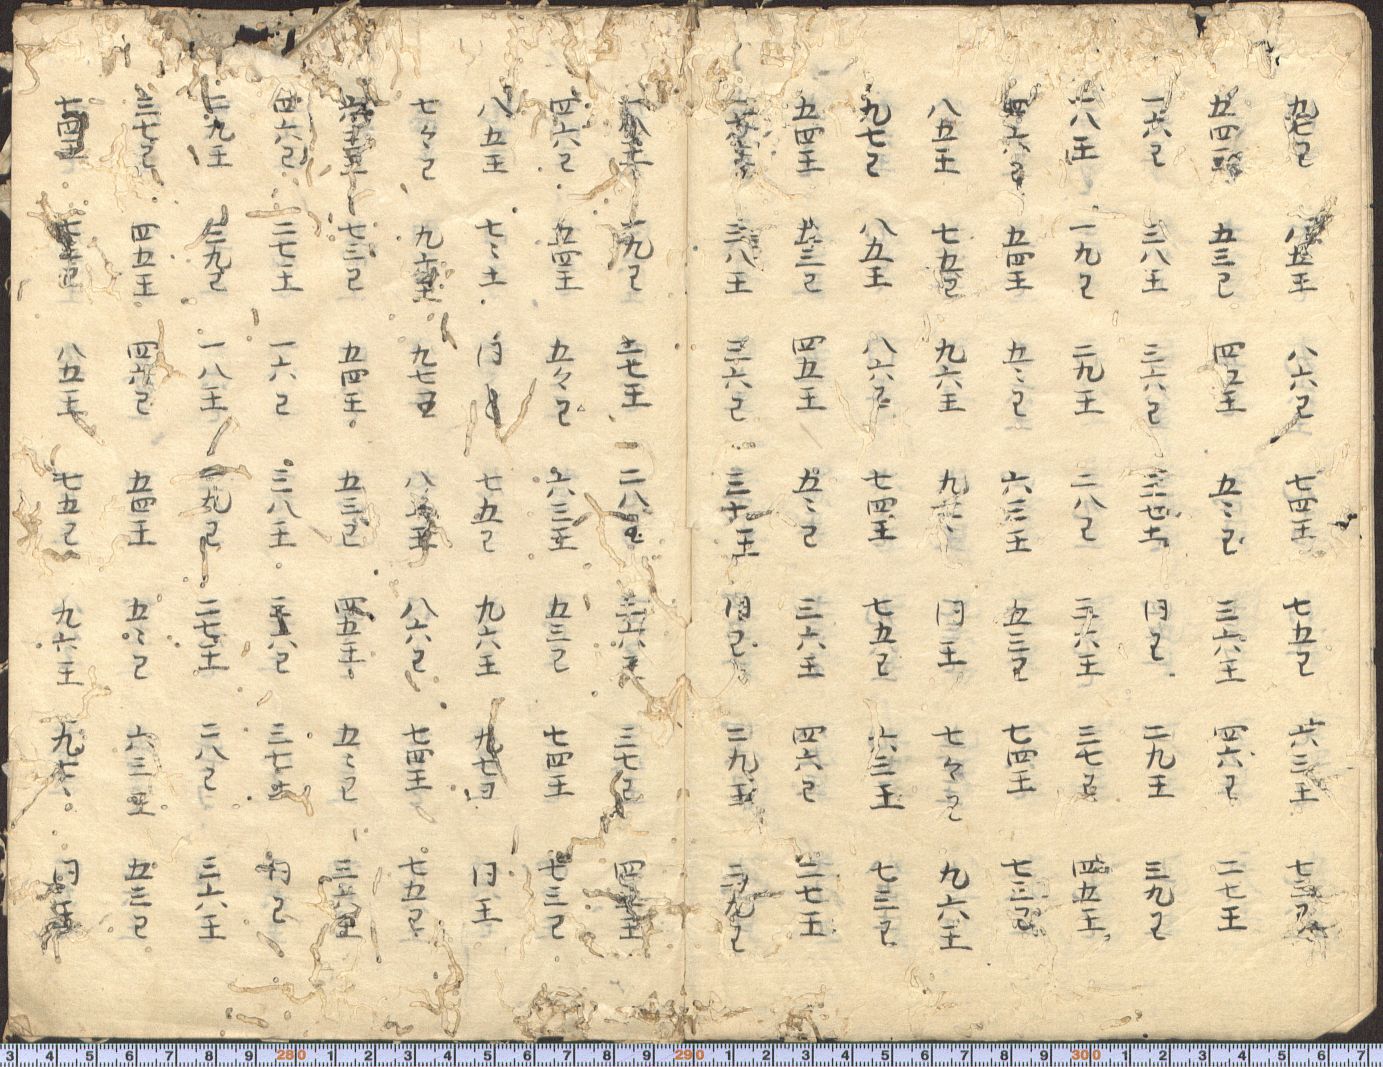 九七己 八五王 八六己 七四王 七五己 六三王 七三己
五四 五三己 四五王 五〻己 三六王 四六己 二七王
一六己 三八王 三六己 三七 同己 二九王 三九己
六八王 一九己 二九王 二八己 三六王 三七己 四五王
四六己 五四王 五〻己 六三王 五三己 七四王 七三己
八五王 七五己 九六王 九七〻 同王 七々己 九六王
九七己 八五王 八六己 七四王 七五己 六三王 七三己
五四王 五三己 四五王 五〻己 三六王 四六己 二七王
三八王 三六己 三七王 同己 二九王 三九己
一九己 二七王 二八己 三六己 三七己 四五王
四六己 五四王 五々己 六三王 五三己 七四王 七三己
八五王 七〻土 同 七五己 九六王 九七日 同王
七々己 九六王 九七五 八五王 八六己 七四王 七五己
六三王 七三己 五四王 五三己 四五王 五〻己 三六王
四六己 二七土 一六己 三八王 三六己 三七土 同己
二九王 三九己 一八王 一九己 二七王 二八己 三六王
三七己 四五王 四六己 五四王 五〻己 六三王 五三己
七四王 七三己 八五王 七五己 九六王 九七〻 同王